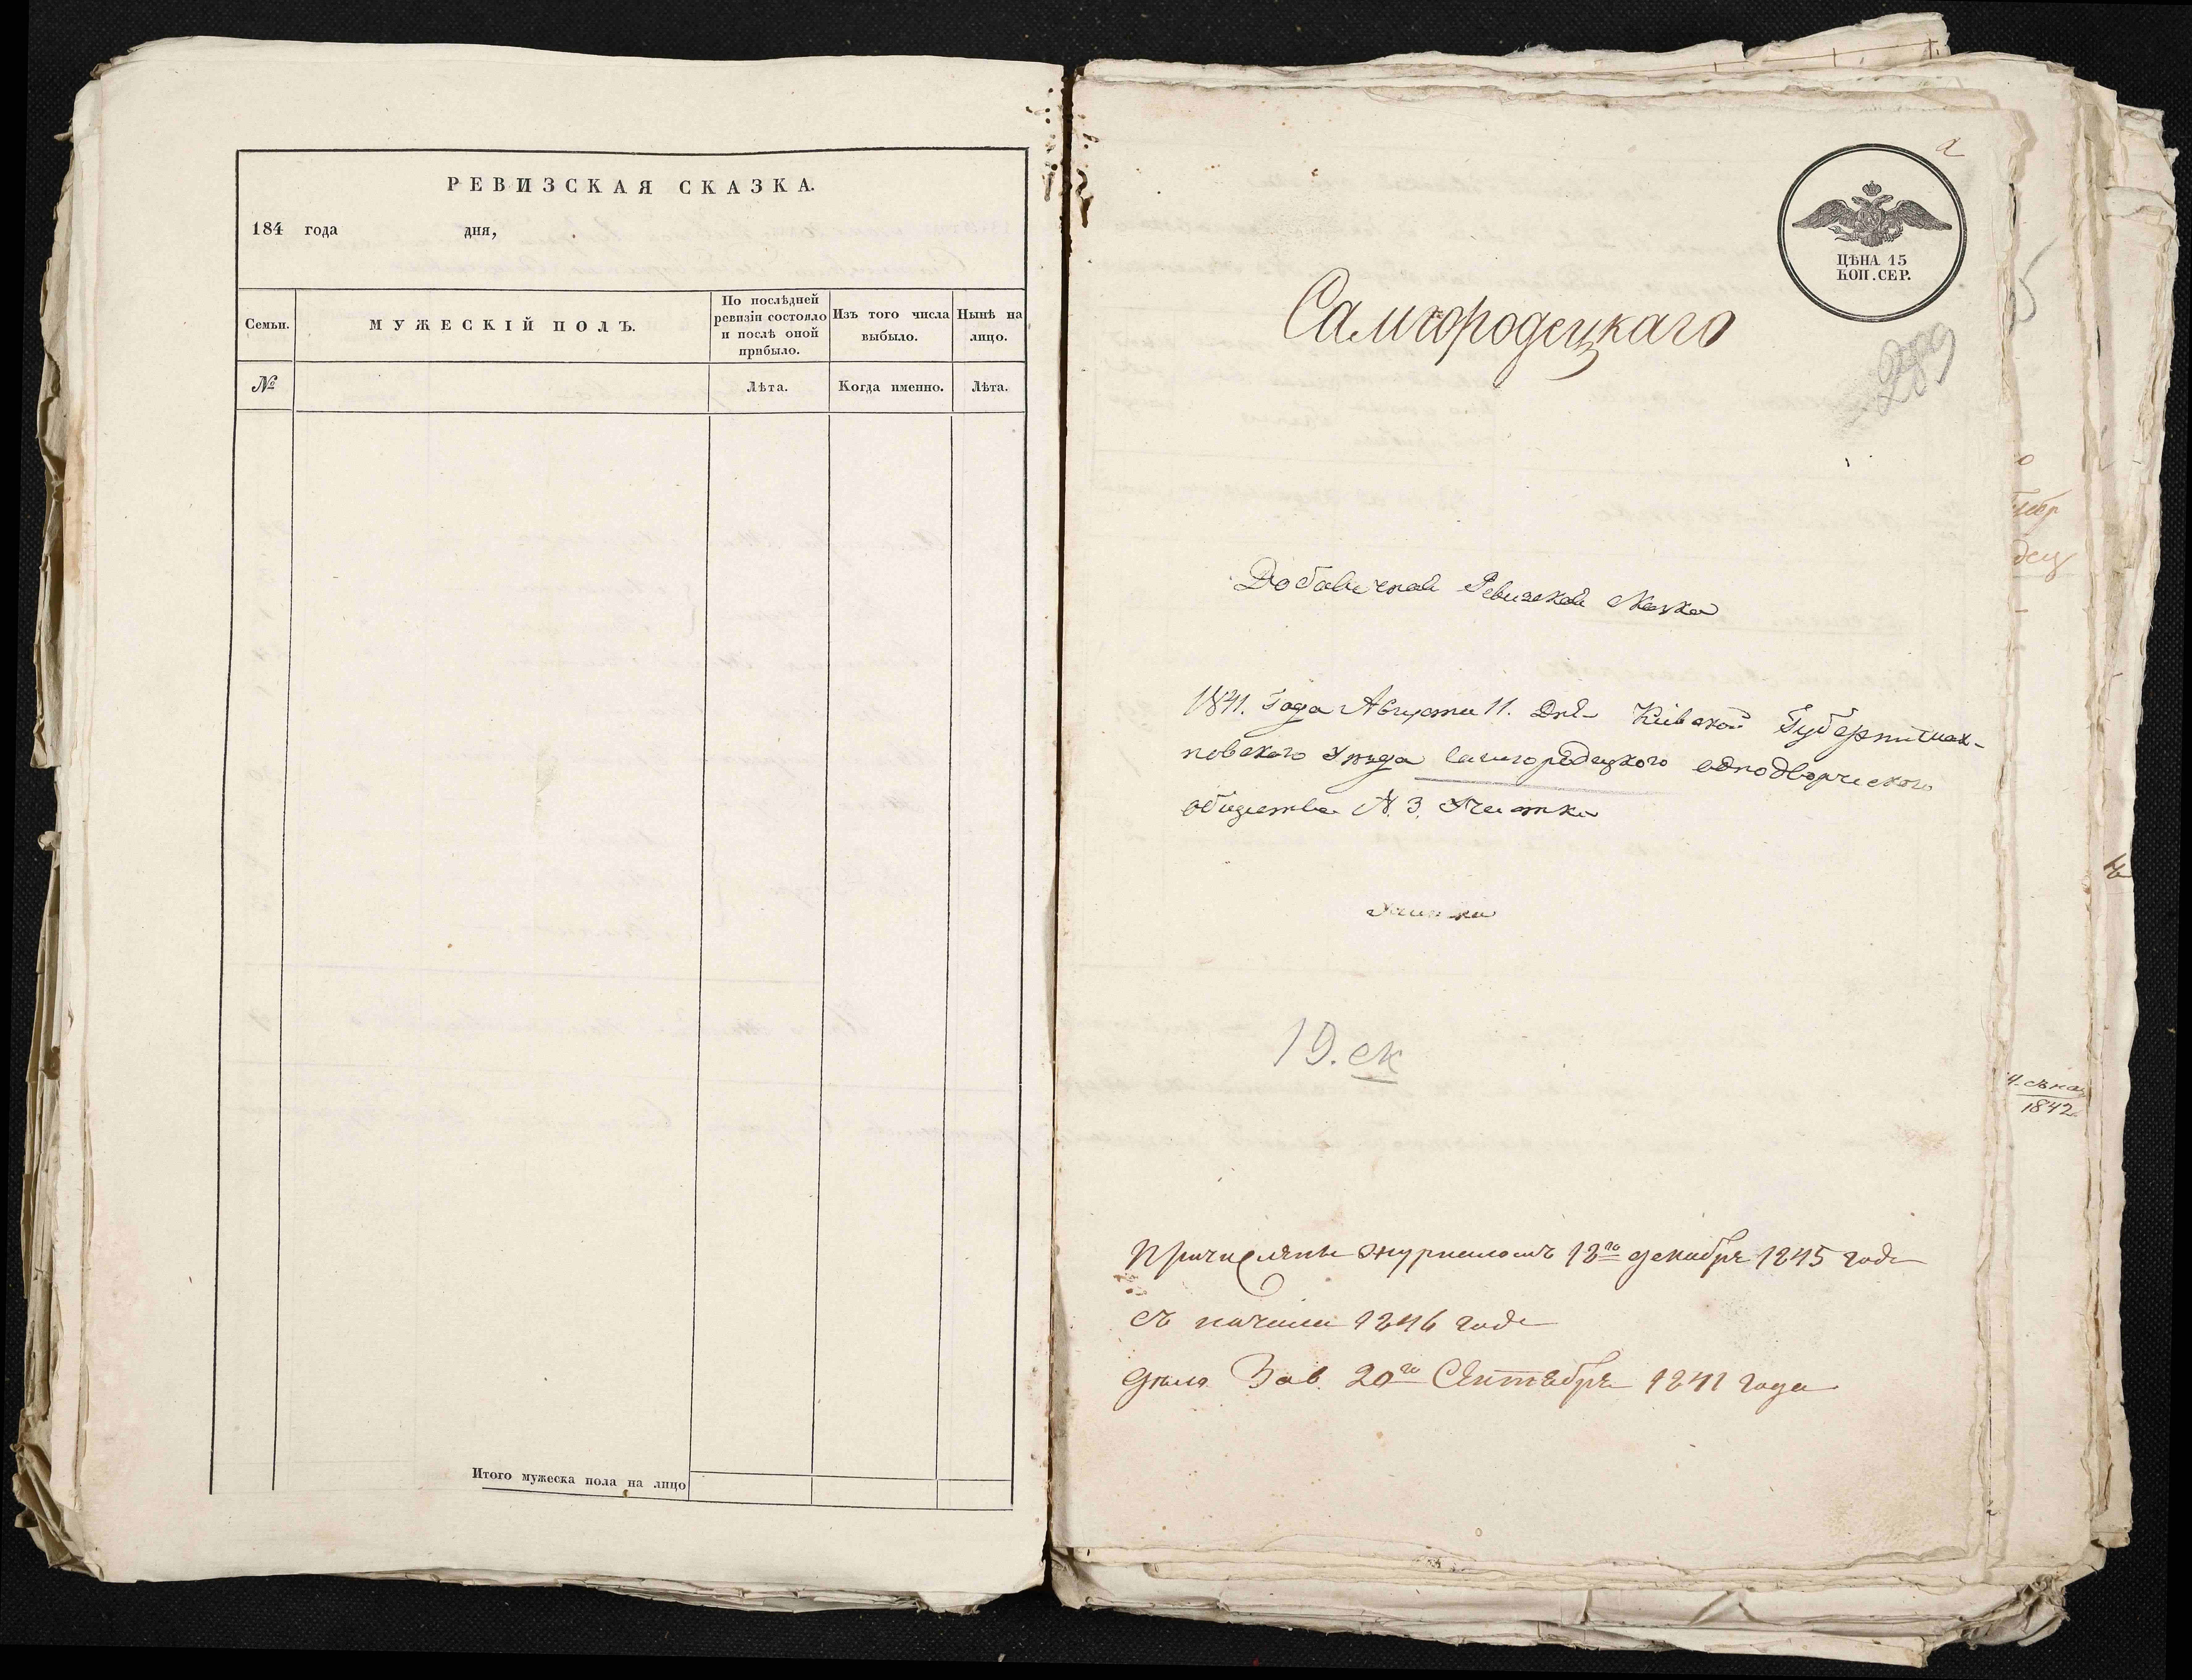 РЕВИЗСКАЯ СКАЗКА.
184 года дня,
Семьи.
МУЖЕСКІЙ ПОЛЪ.
По послѣдней
ревизіи состояло
и послѣ оной
прибыло.
Изъ того числа
выбыло.
Нынѣ на
лицо.
№
Лѣта.
Когда именно.
Лѣта.
Итого мужеска пола на лицо
ЦѢНА 15
КОП. СЕР.
Самгородецкаго
289
Добавичная Ревизская Сказка
1841. Года Августа 11. Дня Кіевской Губерніи Мах-
новского Уезда Самгородецкого однодворческого
общества №. 3. Участка
Участка
19. ск
Причислены журналомъ 18го декабря 1845 года
съ начала 1846 года
20го Сентября 1841 года
1842